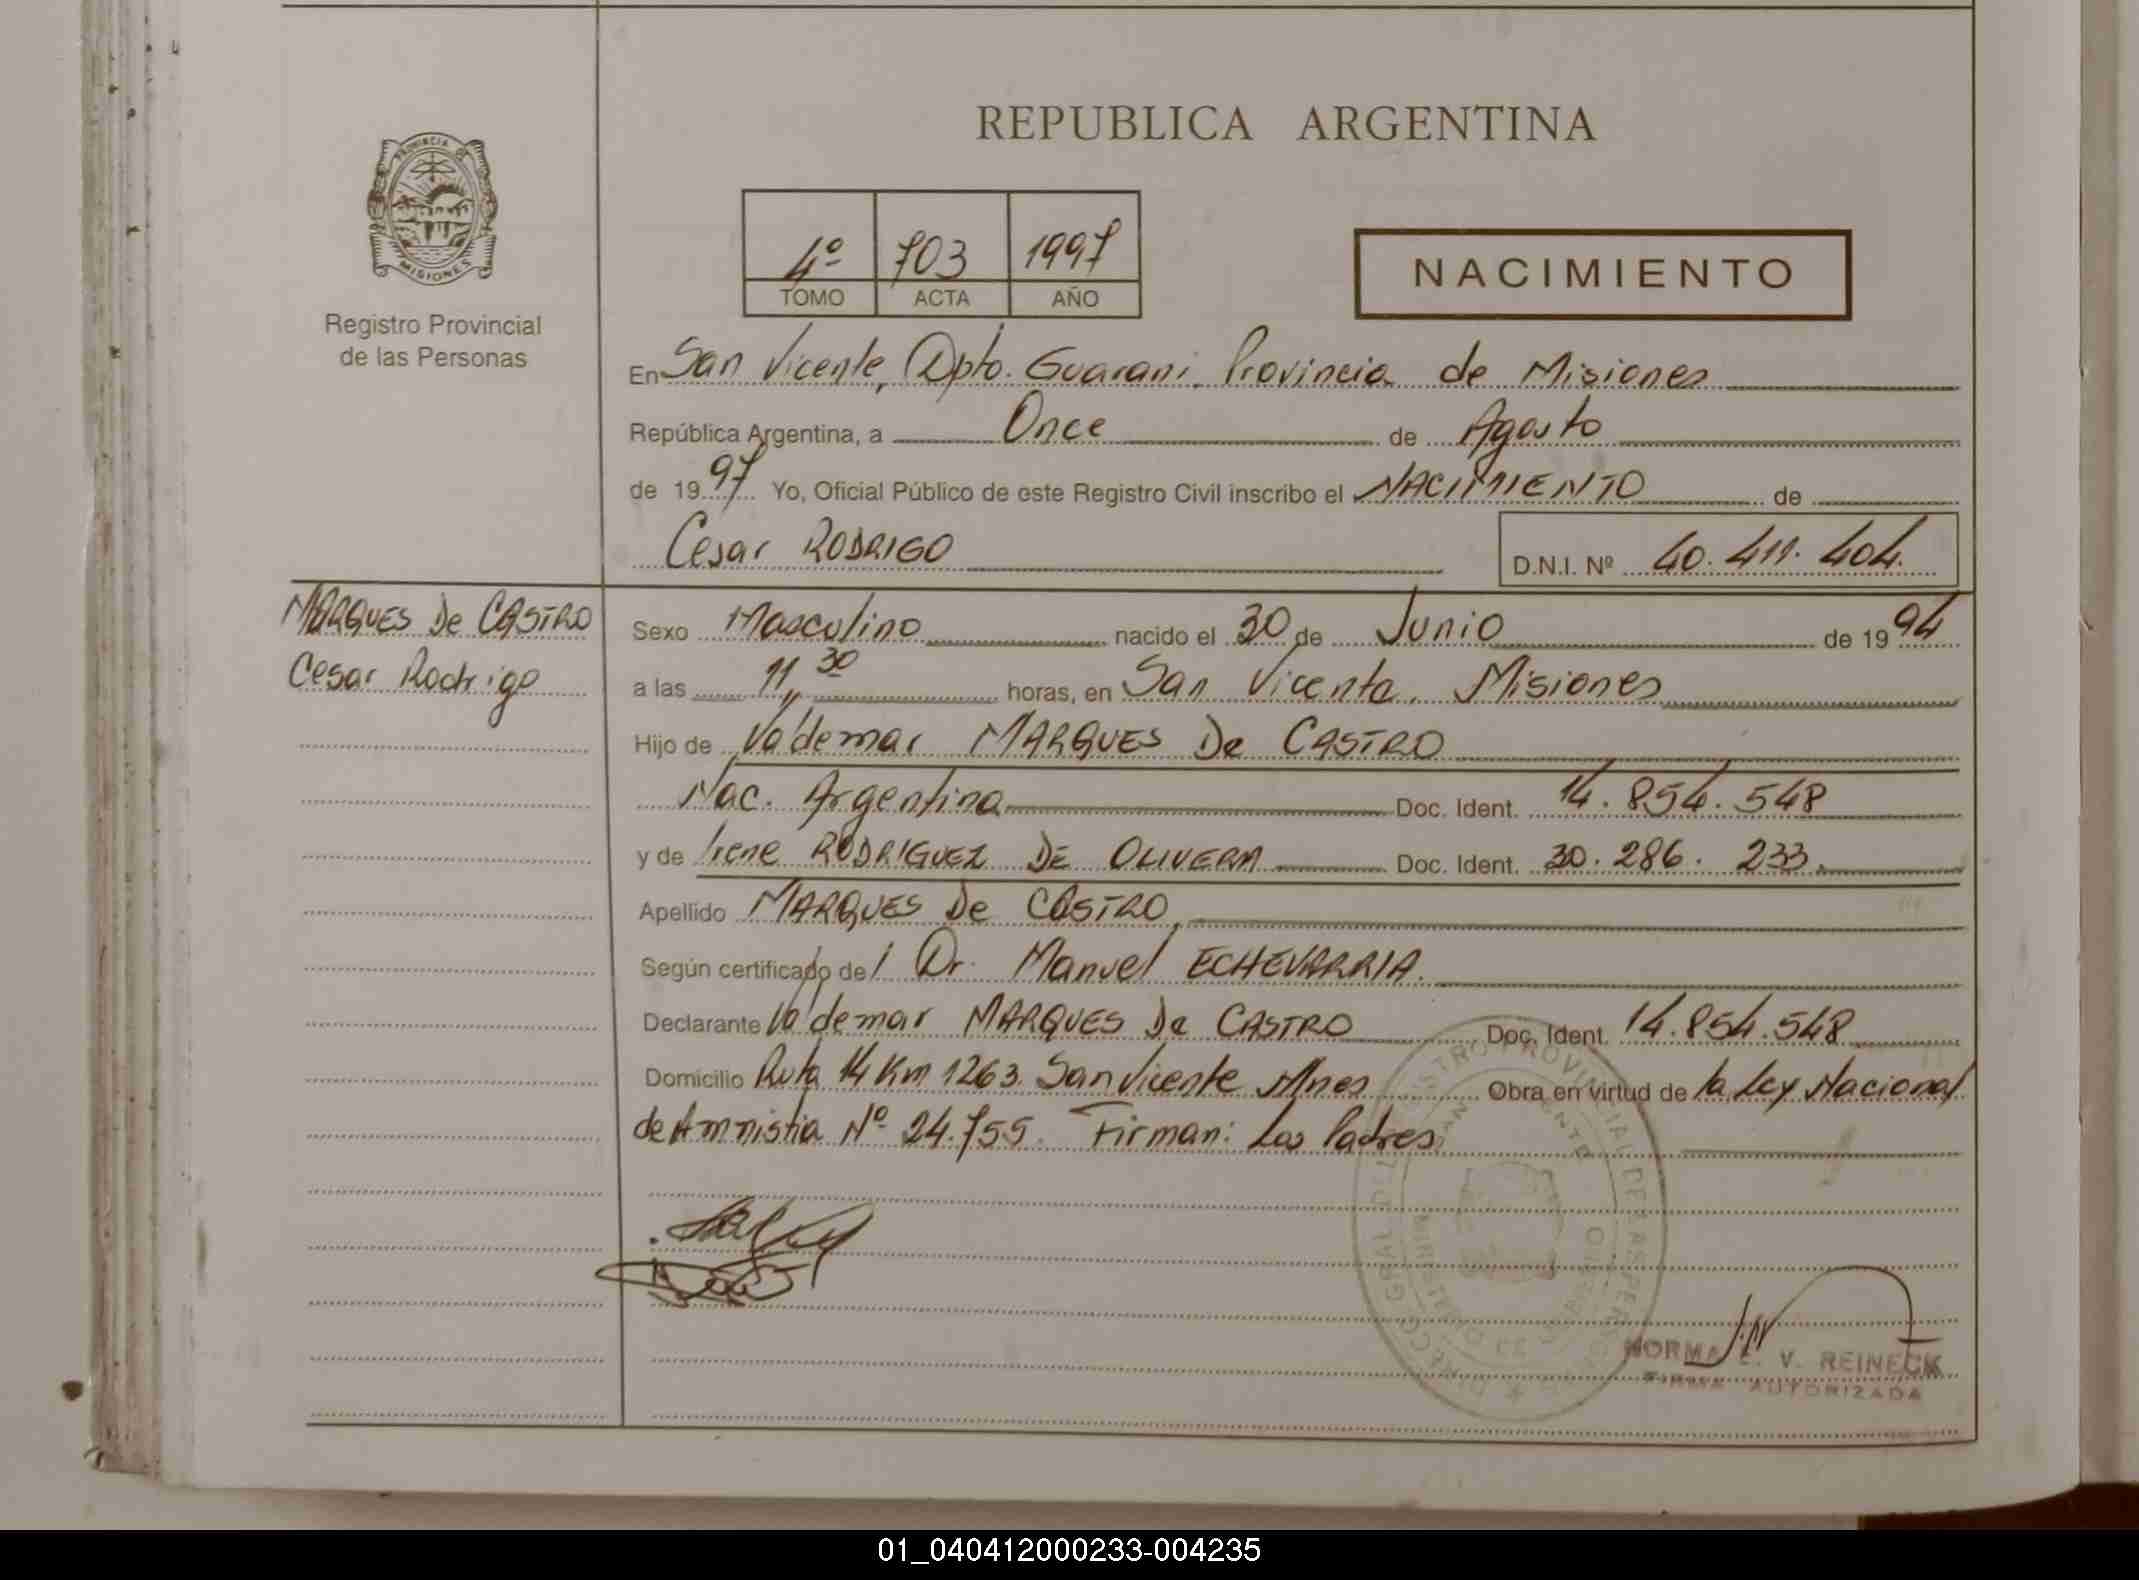 REPUBLICA ARGENTINA
PROVINCIA DE
MISIONES
Registro Provincial
de las Personas
4º 703 1997
TOMO ACTA AÑO
NACIMIENTO
En San Vicente, Dpto. Guarani. Provincia de Misiones
República Argentina, a Once de Agosto
de 1997 Yo, Oficial Público de este Registro Civil inscribo el NACIMIENTO de
Cesar RODRIGO D.N.I. Nº 40.411.404.
MARQUES De CASTRO
Cesar Rodrigo
Sexo Masculino nacido el 30 de Junio de 1994
a las 11,,30 horas, en San Vicente, Misiones
Hijo de Valdemar MARQUES De CASTRO
Nac. Argentina Doc. Ident. 14.854.548
y de Irene RODRIGUEZ DE OLIVERA Doc. Ident. 30.286.233.
Apellido MARQUES De CASTRO
Según certificado del Dr. Manuel ECHEVARRIA.
Declarante Valdemar MARQUES De CASTRO Doc. Ident. 14.854.548
Domicilio Ruta 14 Km 1263. San Vicente Mnes Obra en virtud de la Ley Nacional
de Amnistia Nº 24.755. Firman: Los Padres.
NORMA E. V. REINECK
FIRMA AUTORIZADA
01_040412000233-004235